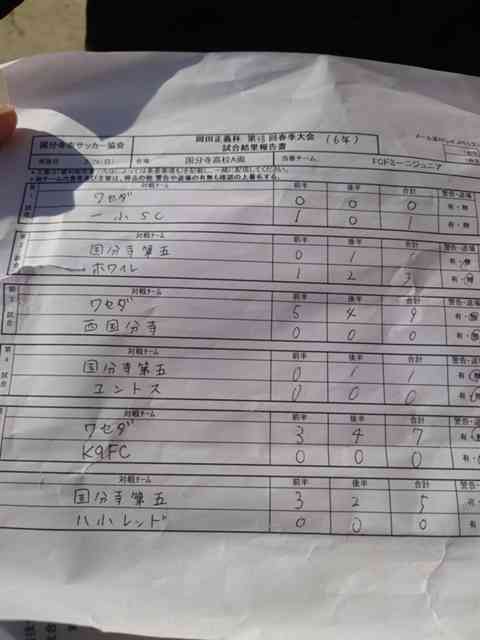 岡田正義杯 第48回春季大会 (6年)
国分寺市サッカー協会 試合結果報告書
(日) 会場 国分寺高校A面 当番チーム FCFミーニジュニア
対戦チーム 前半 後半 合計 警告・退場
ワセダ 0 0 0 有・無
一小SC 1 0 1
対戦チーム 前半 後半 合計 警告・退場
国分寺第五 0 1
ホワイト 1 2 3 有・無
対戦チーム 前半 後半 合計 警告・退場
第3試合 ワセダ 5 4 9 有・無
西国分寺 0 0 0 有・無
対戦チーム 前半 後半 合計 警告・退
第4試合 国分寺第五 0 1 1 有・無
ユントス 0 0 0 有
対戦チーム 前半 後半 合計 警告・
ワセダ 3 4 7 有
K9FC 0 0 0 有・
対戦チーム 前半 後半 合計 警告
国分寺第五 3 2 5
八小レッド 0 0 0 有